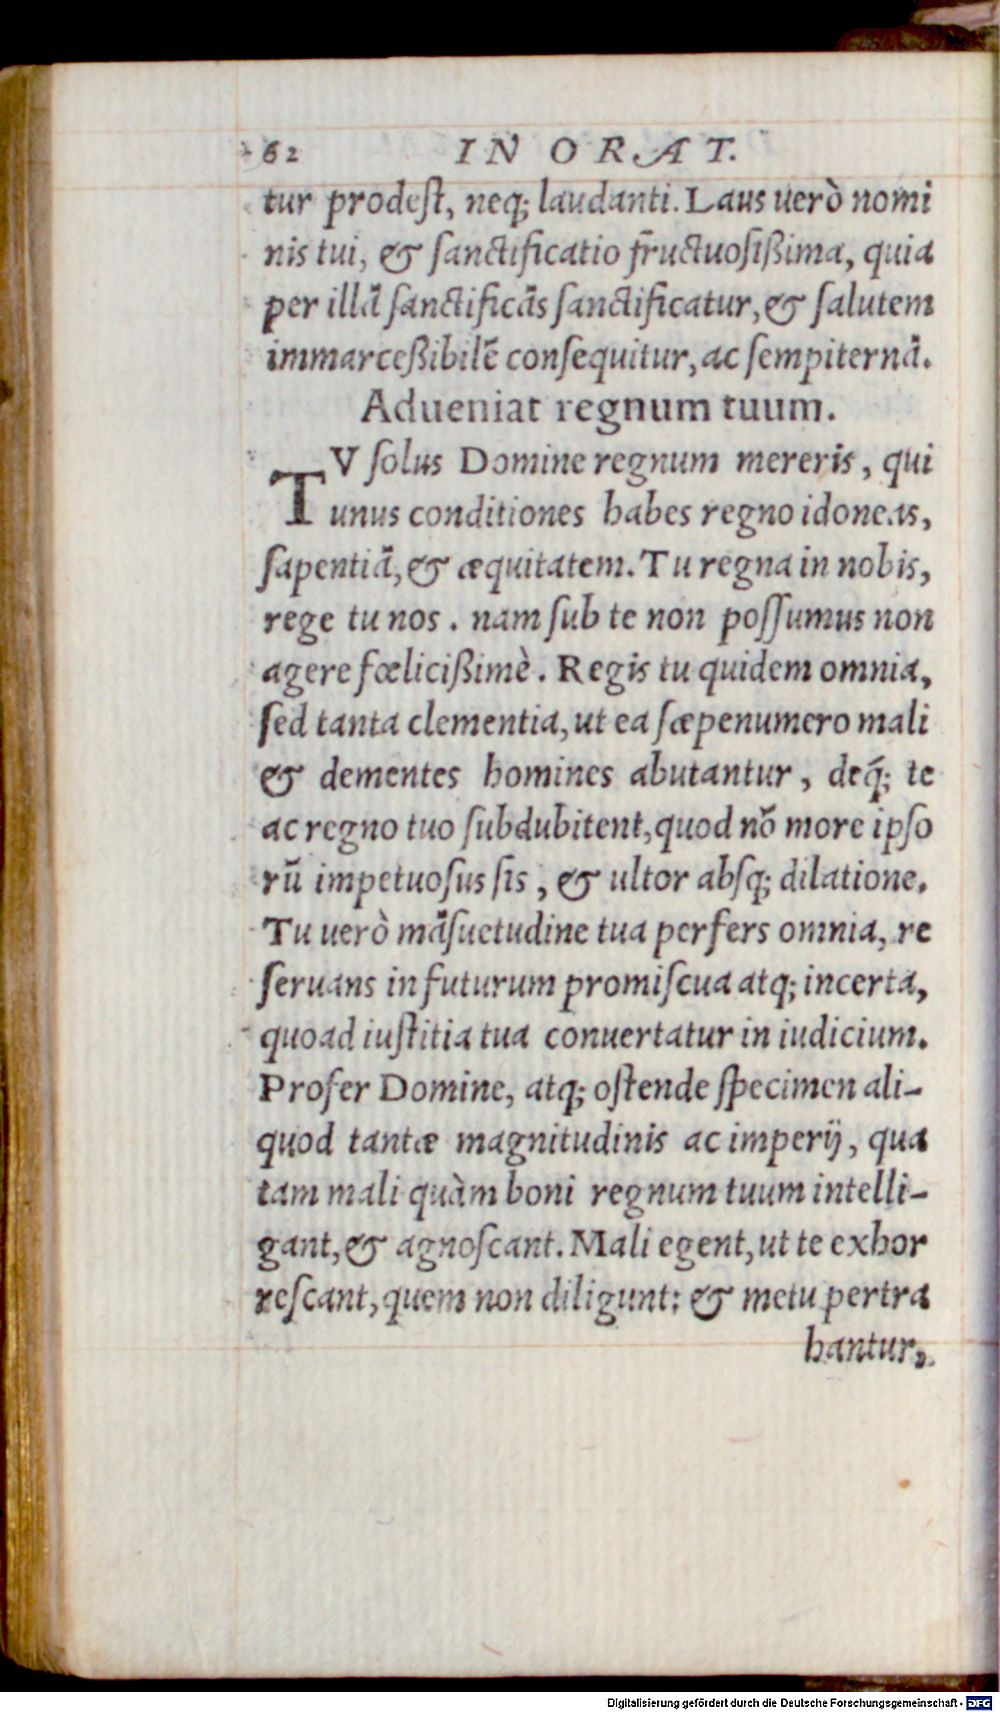 62 IN ORAT.
tur prodest, neq; laudanti. Laus uerò nomi
nis tui, & sanctificatio fructuosißima, quia
per illā sanctificās sanctificatur, & salutem
immarceßibilē consequitur, ac sempiternā.
Adueniat regnum tuum.
TV solus Domine regnum mereris, qui
unus conditiones habes regno idoneas,
sapentiā, & æquitatem. Tu regna in nobis,
rege tu nos. nam sub te non possumus non
agere fœlicißimè. Regis tu quidem omnia,
sed tanta clementia, ut ea sæpenumero mali
& dementes homines abutantur, deq́; te
ac regno tuo subdubitent, quod nō more ipso
rū impetuosus sis, & ultor absq; dilatione.
Tu uerò māsuetudine tua perfers omnia, re
seruans in futurum promiscua atq; incerta,
quoad iustitia tua conuertatur in iudicium.
Profer Domine, atq; ostende specimen ali-
quod tantæ magnitudinis ac imperij, qua
tam mali quàm boni regnum tuum intelli-
gant, & agnoscant. Mali egent, ut te exhor
rescant, quem non diligunt: & metu pertra
hantur,
Digitalisierung gefördert durch die Deutsche Forschungsgemeinschaft - DFG